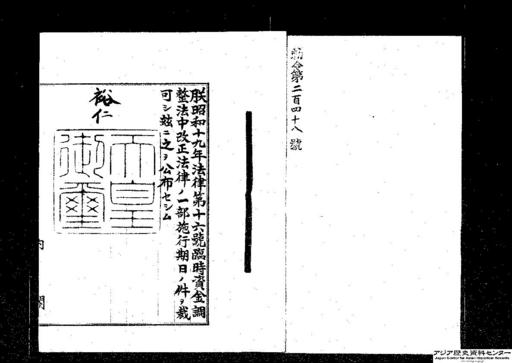 勅令第二百四十八號
朕昭和十九年法律第十六號臨時資金調
整法中改正法律ノ一部施行期日ノ件ヲ裁
可シ玆ニ之ヲ公布セシム
裕仁
天皇
御璽
内閣
アジア歴史資料センター
Japan Center for Asian Historical Records